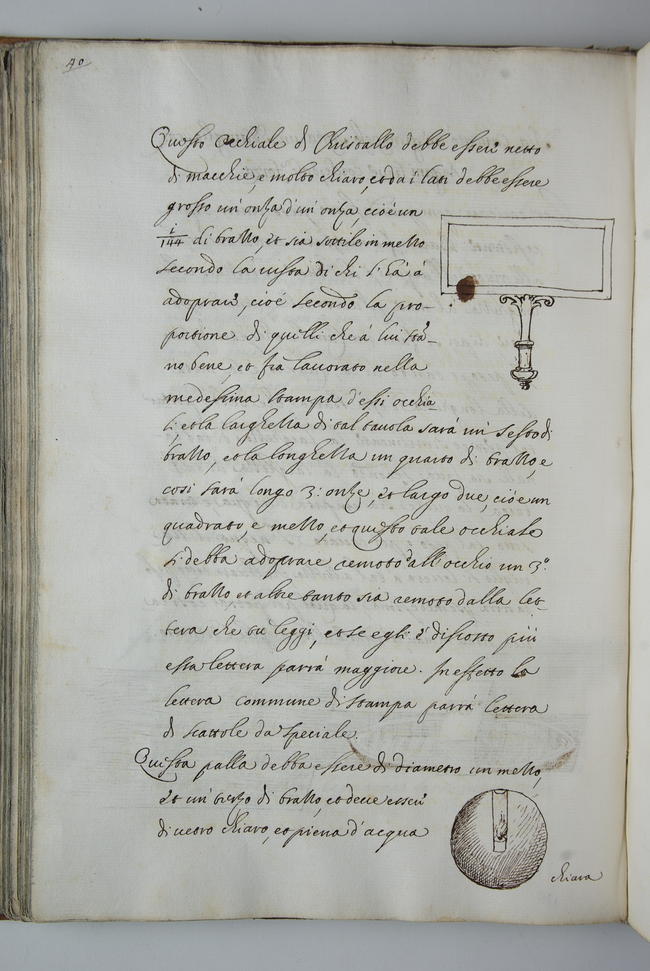 40
Questo occhiale di Christallo debbe esser netto
di macchie, e molto chiaro, et da i lati debbe essere
grosso un' onza d'un' onza, cioé un
1/144 di brazzo, et sia sottile in mezzo
secondo la vista di chi l'ha á
adoprar, cioé secondo la pro-
portione di quelli che á lui stá-
no bene, et fia lavorato nella
medesima stampa d'essi occhia-
li, et la larghezza di tal tavola sará un' sesto di
brazzo, et la longhezza un quarto di brazzo, e
cosi sará longo 3: onze, et largo due, cioé un
quadrato, e mezzo, et questo tale occhiale
si debba adoprare remoto dall' occhio un 3.º
di brazzo, et altre tanto sia remoto dalla let-
tera che tu leggi, et se egli é discosto piú
essa lettera parrá maggiore. In effetto la
lettera commune di stampa parrá lettera
di scattole da speciale.
Questa palla debba essere di diametro un mezzo,
et un' terzo di brazzo, et deve esser
di vetro chiaro, et piena d'acqua
chiara